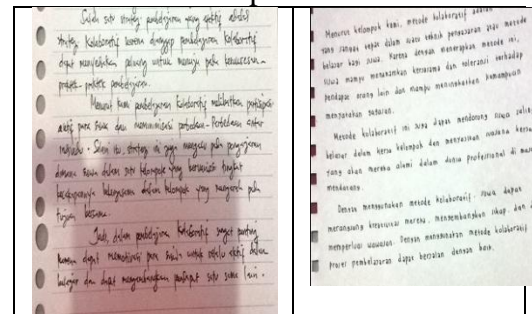 Salah satu strategi pembelajaran yang efektif adalah
strategi kolaboratif karena dianggap pembelajaran kolaboratif
dapat menyebabkan peluang untuk menuju pada kesuksesan
praktek-praktek pembelajaran.
Menurut kami pembelajaran kolaboratif melibatkan partisipasi
aktif para siswa dan meminimalisasi perbedaan-perbedaan antar
individu. Selain itu, strategi ini juga mengacu pada pengajaran
dimana siswa dalam satu kelompok yang bervariasi tingkat
kecakapannya bekerjasama dalam kelompok yang mengarah pada
tujuan bersama.
Jadi, dalam pembelajaran kolaboratif sangat penting
karena dapat memotivasi para siswa untuk selalu aktif dalam
belajar dan dapat mengembangkan pendapat satu sama lain.
Menurut kelompok kami, metode kolaboratif adalah
yang sangat tepat dalam suatu teknik pengajaran atau metode
belajar bagi siswa. Karena dengan menerapkan metode ini,
siswa mampu menanamkan kerjasama dan toleransi terhadap
pendapat orang lain dan mampu meningkatkan kemampuan
menyatakan gagasan.
Metode kolaboratif ini juga dapat mendorong siswa saling
belajar dalam kerja kelompok dan menyajikan suasana
yang akan mereka alami dalam dunia profesional di masa
mendatang.
Dengan menggunakan metode kolaboratif, siswa dapat
merangsang kreativitas mereka, mengembangkan sikap dan
memperluas wawasan. Dengan menggunakan metode kolaboratif
proses pembelajaran dapat berjalan dengan baik.